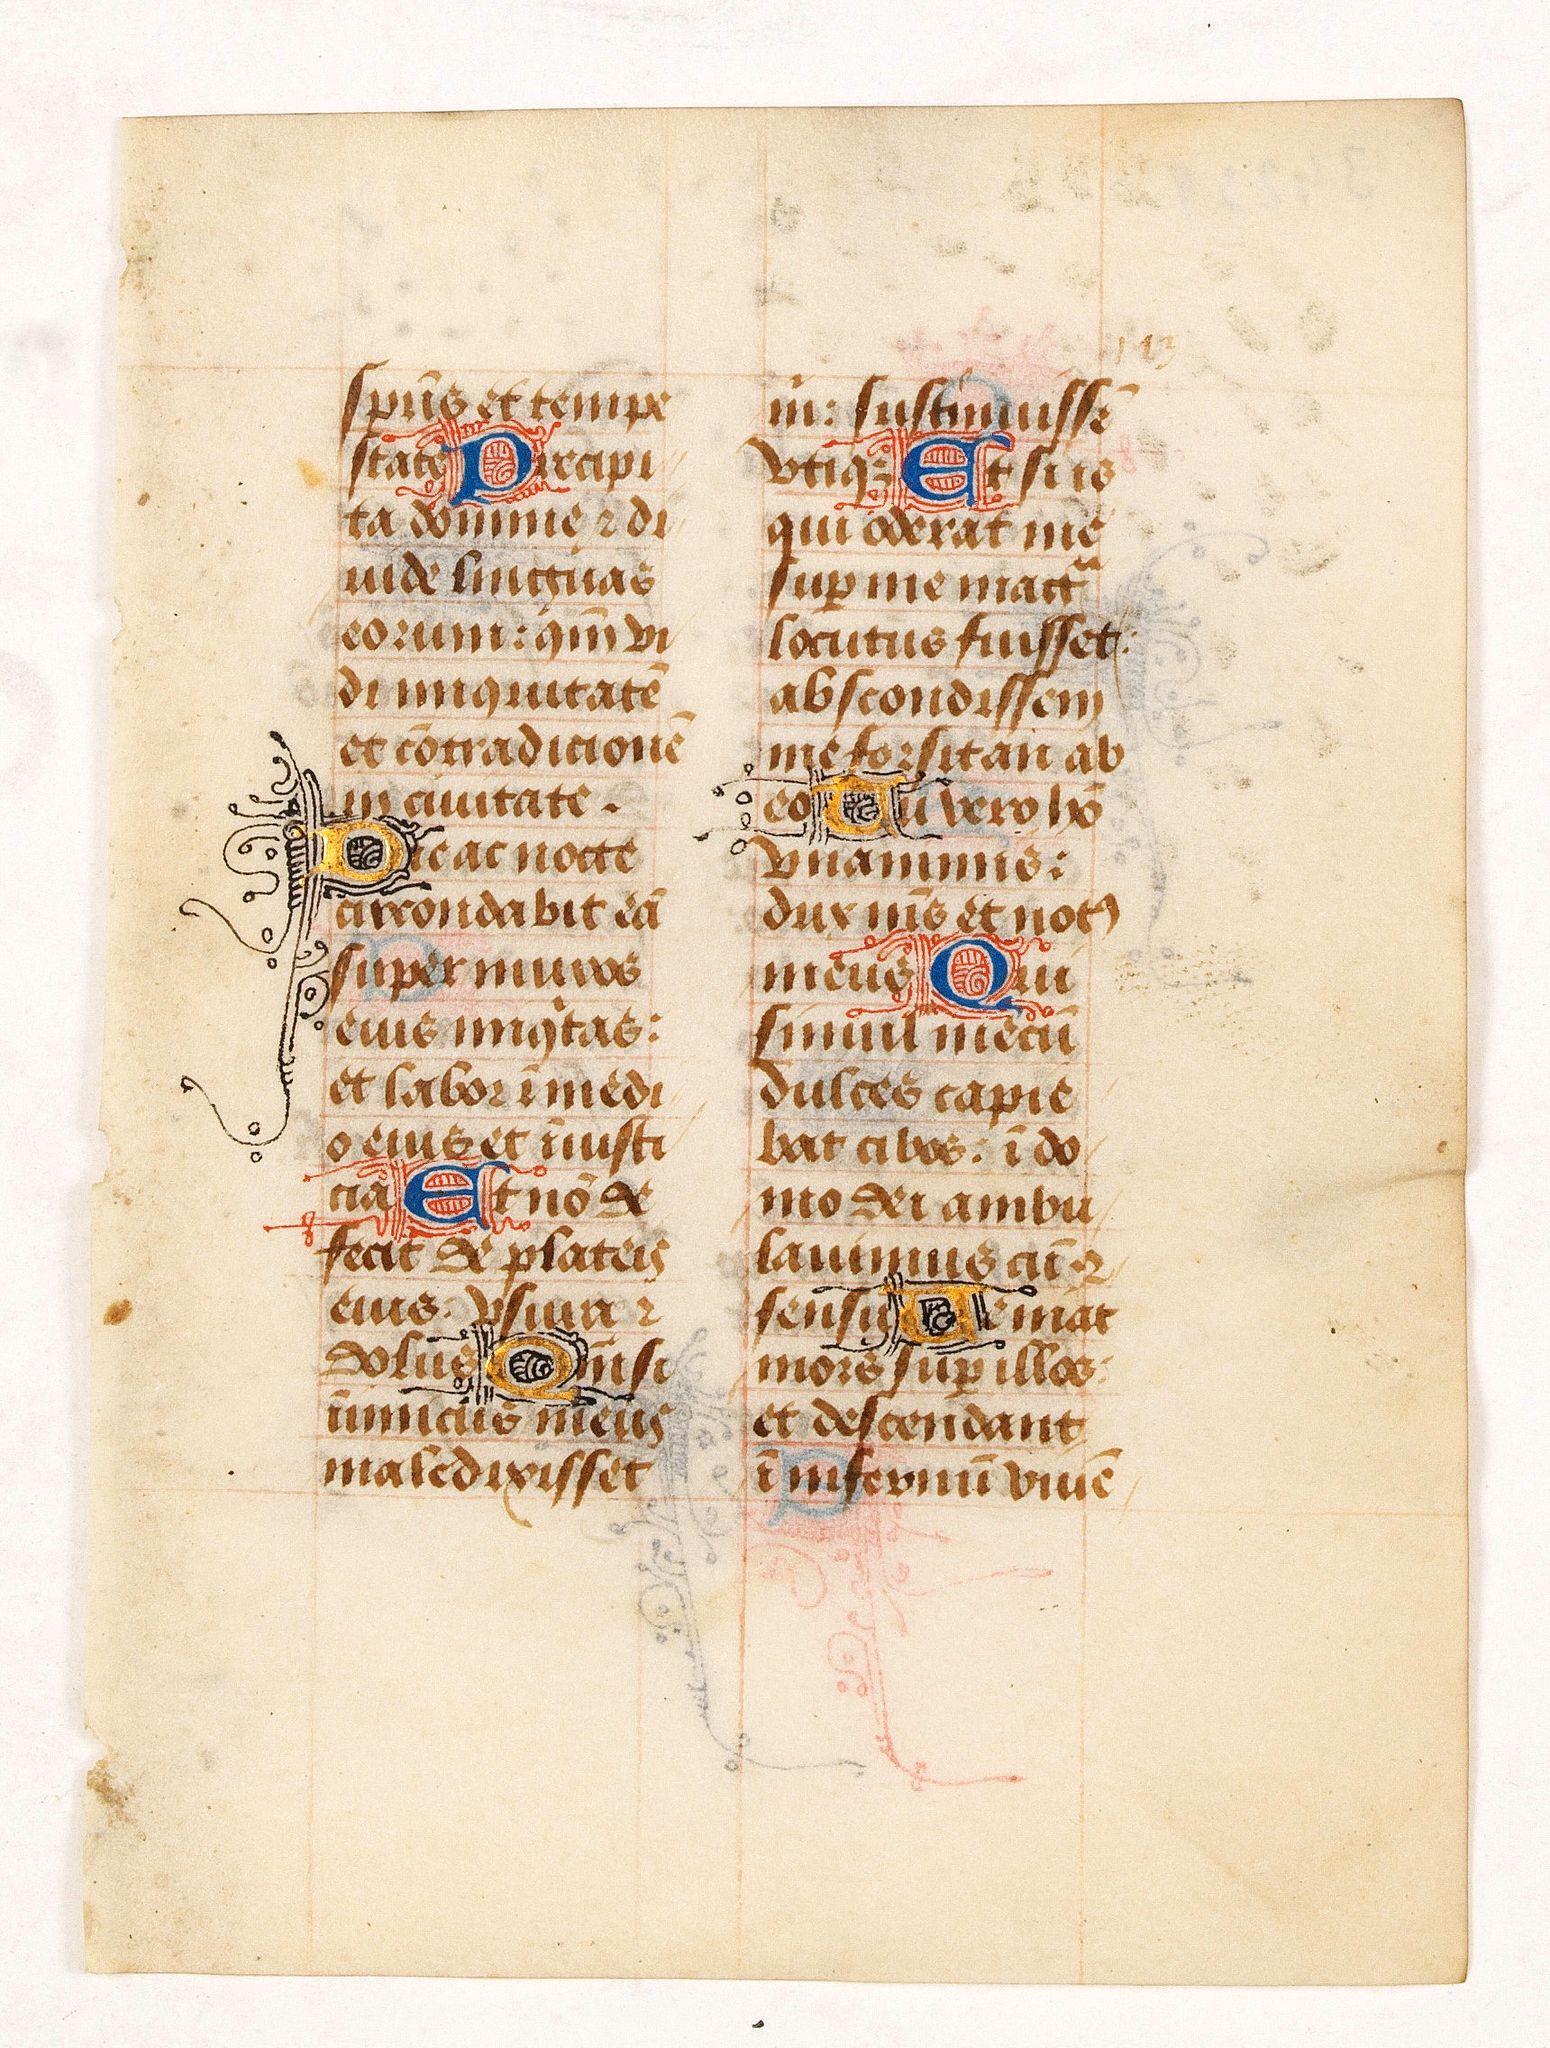 spūs et tempe
state Precipi
ta domine ⁊ di
uide linguas
eorum: qm̄ vi
di iniquitatē
et cōtradicionē
in ciuitate.
Die ac nocte
circondabit eā
super muros
eius iniqͥtas:
et labor ī medi
o eius et īiusti
cia Et nō de
fecit de plateis
eius: vsura ⁊
dolus Qm̄ si
īimicus meus
maledixisset
m̄: sustinuissē
vtiqꝫ Et si is
qui oderat me
suꝑ me mag
locutus fuisset:
abscondissem
me forsitan ab
eo Tu vero hō
vnanimis:
dux m̄s et notꝰ
meus Qui
simul mecū
dulces capie
bat cibos: ī do
mo dei ambu
lauimus cū ꝯ
sensu Veniat
mors suꝑ illos:
et descendant
ī infernū viuē